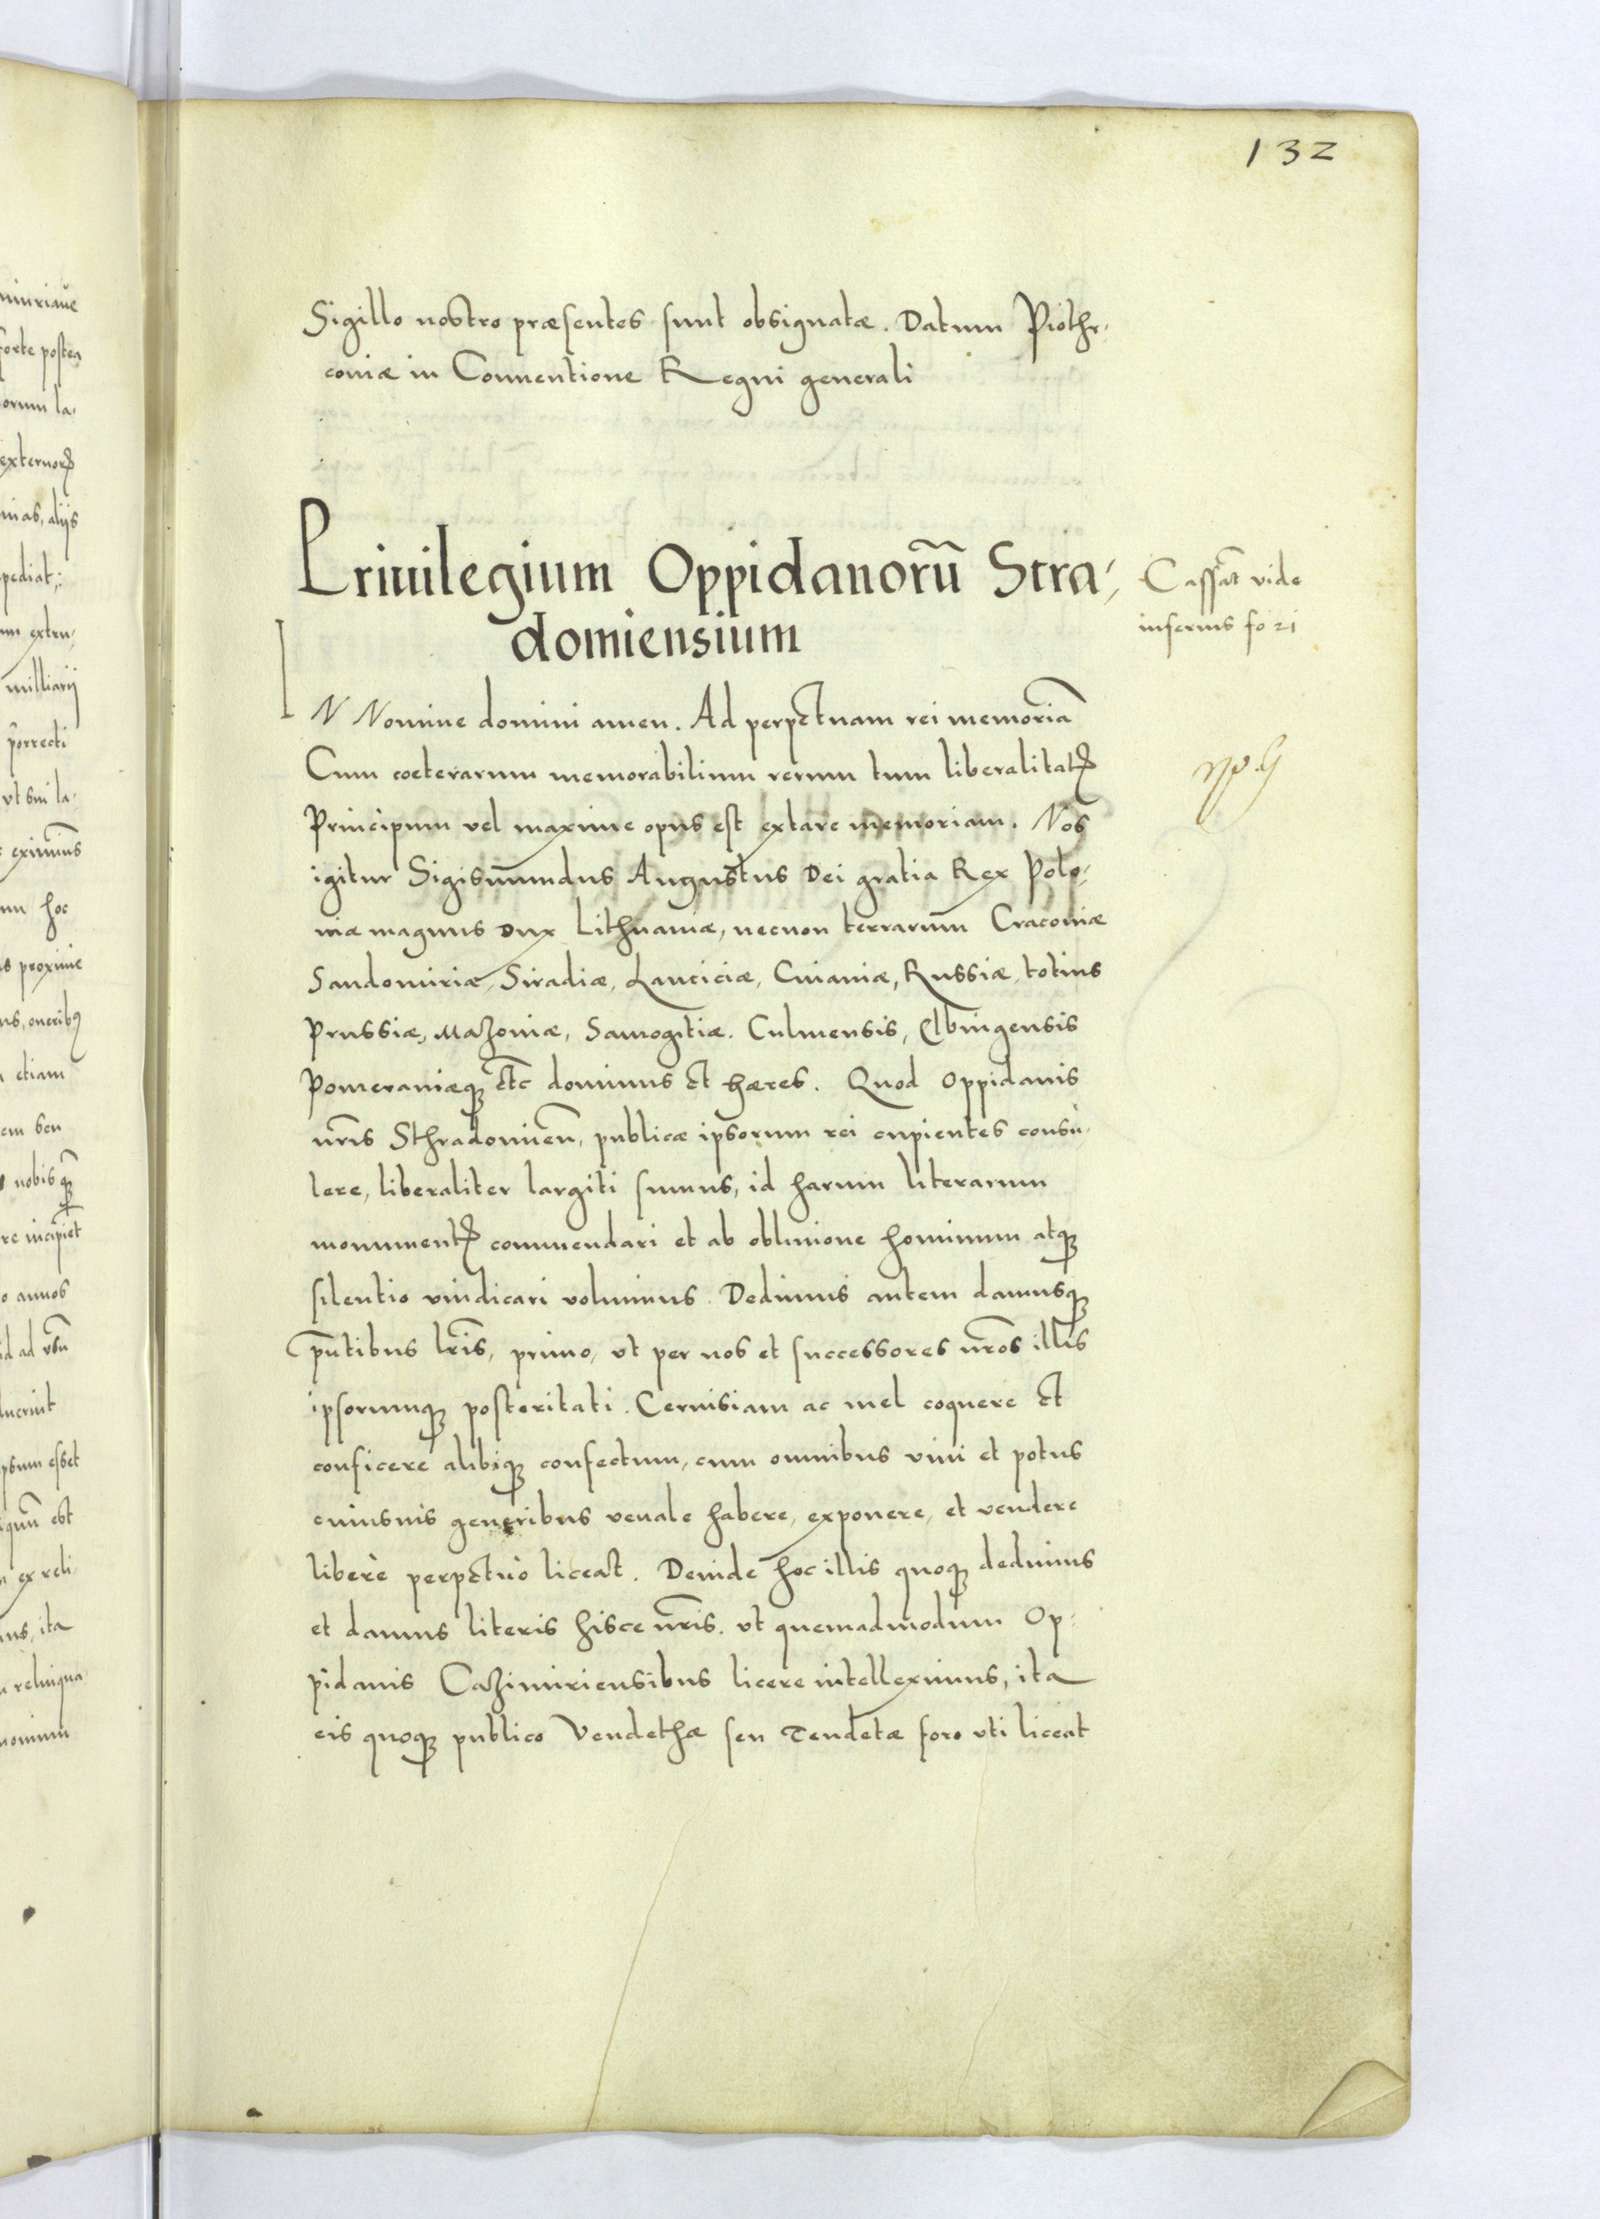 132
Sigillo nostro præsentes sunt obsignatæ. Datum Piothr-
coniæ in Conuentione Regni generali
Priuilegium Oppidanorū Stra-
domiensium
Cassat̄ vide
inferius fo 21
IN Nomine domini amen. Ad perpetuam rei memoriā
Cum coeterarum memorabilium rerum tum liberalitatꝭ
Principum vel maxime opus est extare memoriam. Nos
igitur Sigismūndus Augustus Dei gratia Rex Polo-
niæ magnus Dux Lithuaniæ, necnon terrarum̄ Cracouiæ
Sandomiriæ, Siradiæ, Lanciciæ, Cuiauiæ, Russiæ, totius
Prussiæ, Mazouiæ, Samogitiæ. Culmensis, Elbingensis
Pomeraniæqꝫ etc̄ dominus et hæres. Quod Oppidanis
nr̄is Sthradomien̄, publicæ ipsorum rei cupientes consu-
lere, liberaliter largiti sumus, id harum literarum
monumentꝭ commendari et ab obliuione hominum atqꝫ
silentio vindicari volumus. Dedimus autem damusqꝫ
p̄ntibus lr̄is, primo, vt per nos et successores nr̄os illis
ipsorumqꝫ posteritati. Ceruisiam ac mel coquere et
conficere alibiqꝫ confectum, cum omnibus vini et potus
cuiusuis generibus venale habere, exponere, et vendere
liberè perpetuò liceat. Deinde hoc illis quoqꝫ dedimus
et damus literis hisce nr̄is. vt quemadmodum Op-
pidanis Cazimiriensibus licere intelleximus, ita
eis quoqꝫ publico Vendethæ seu Tendetæ foro vti liceat